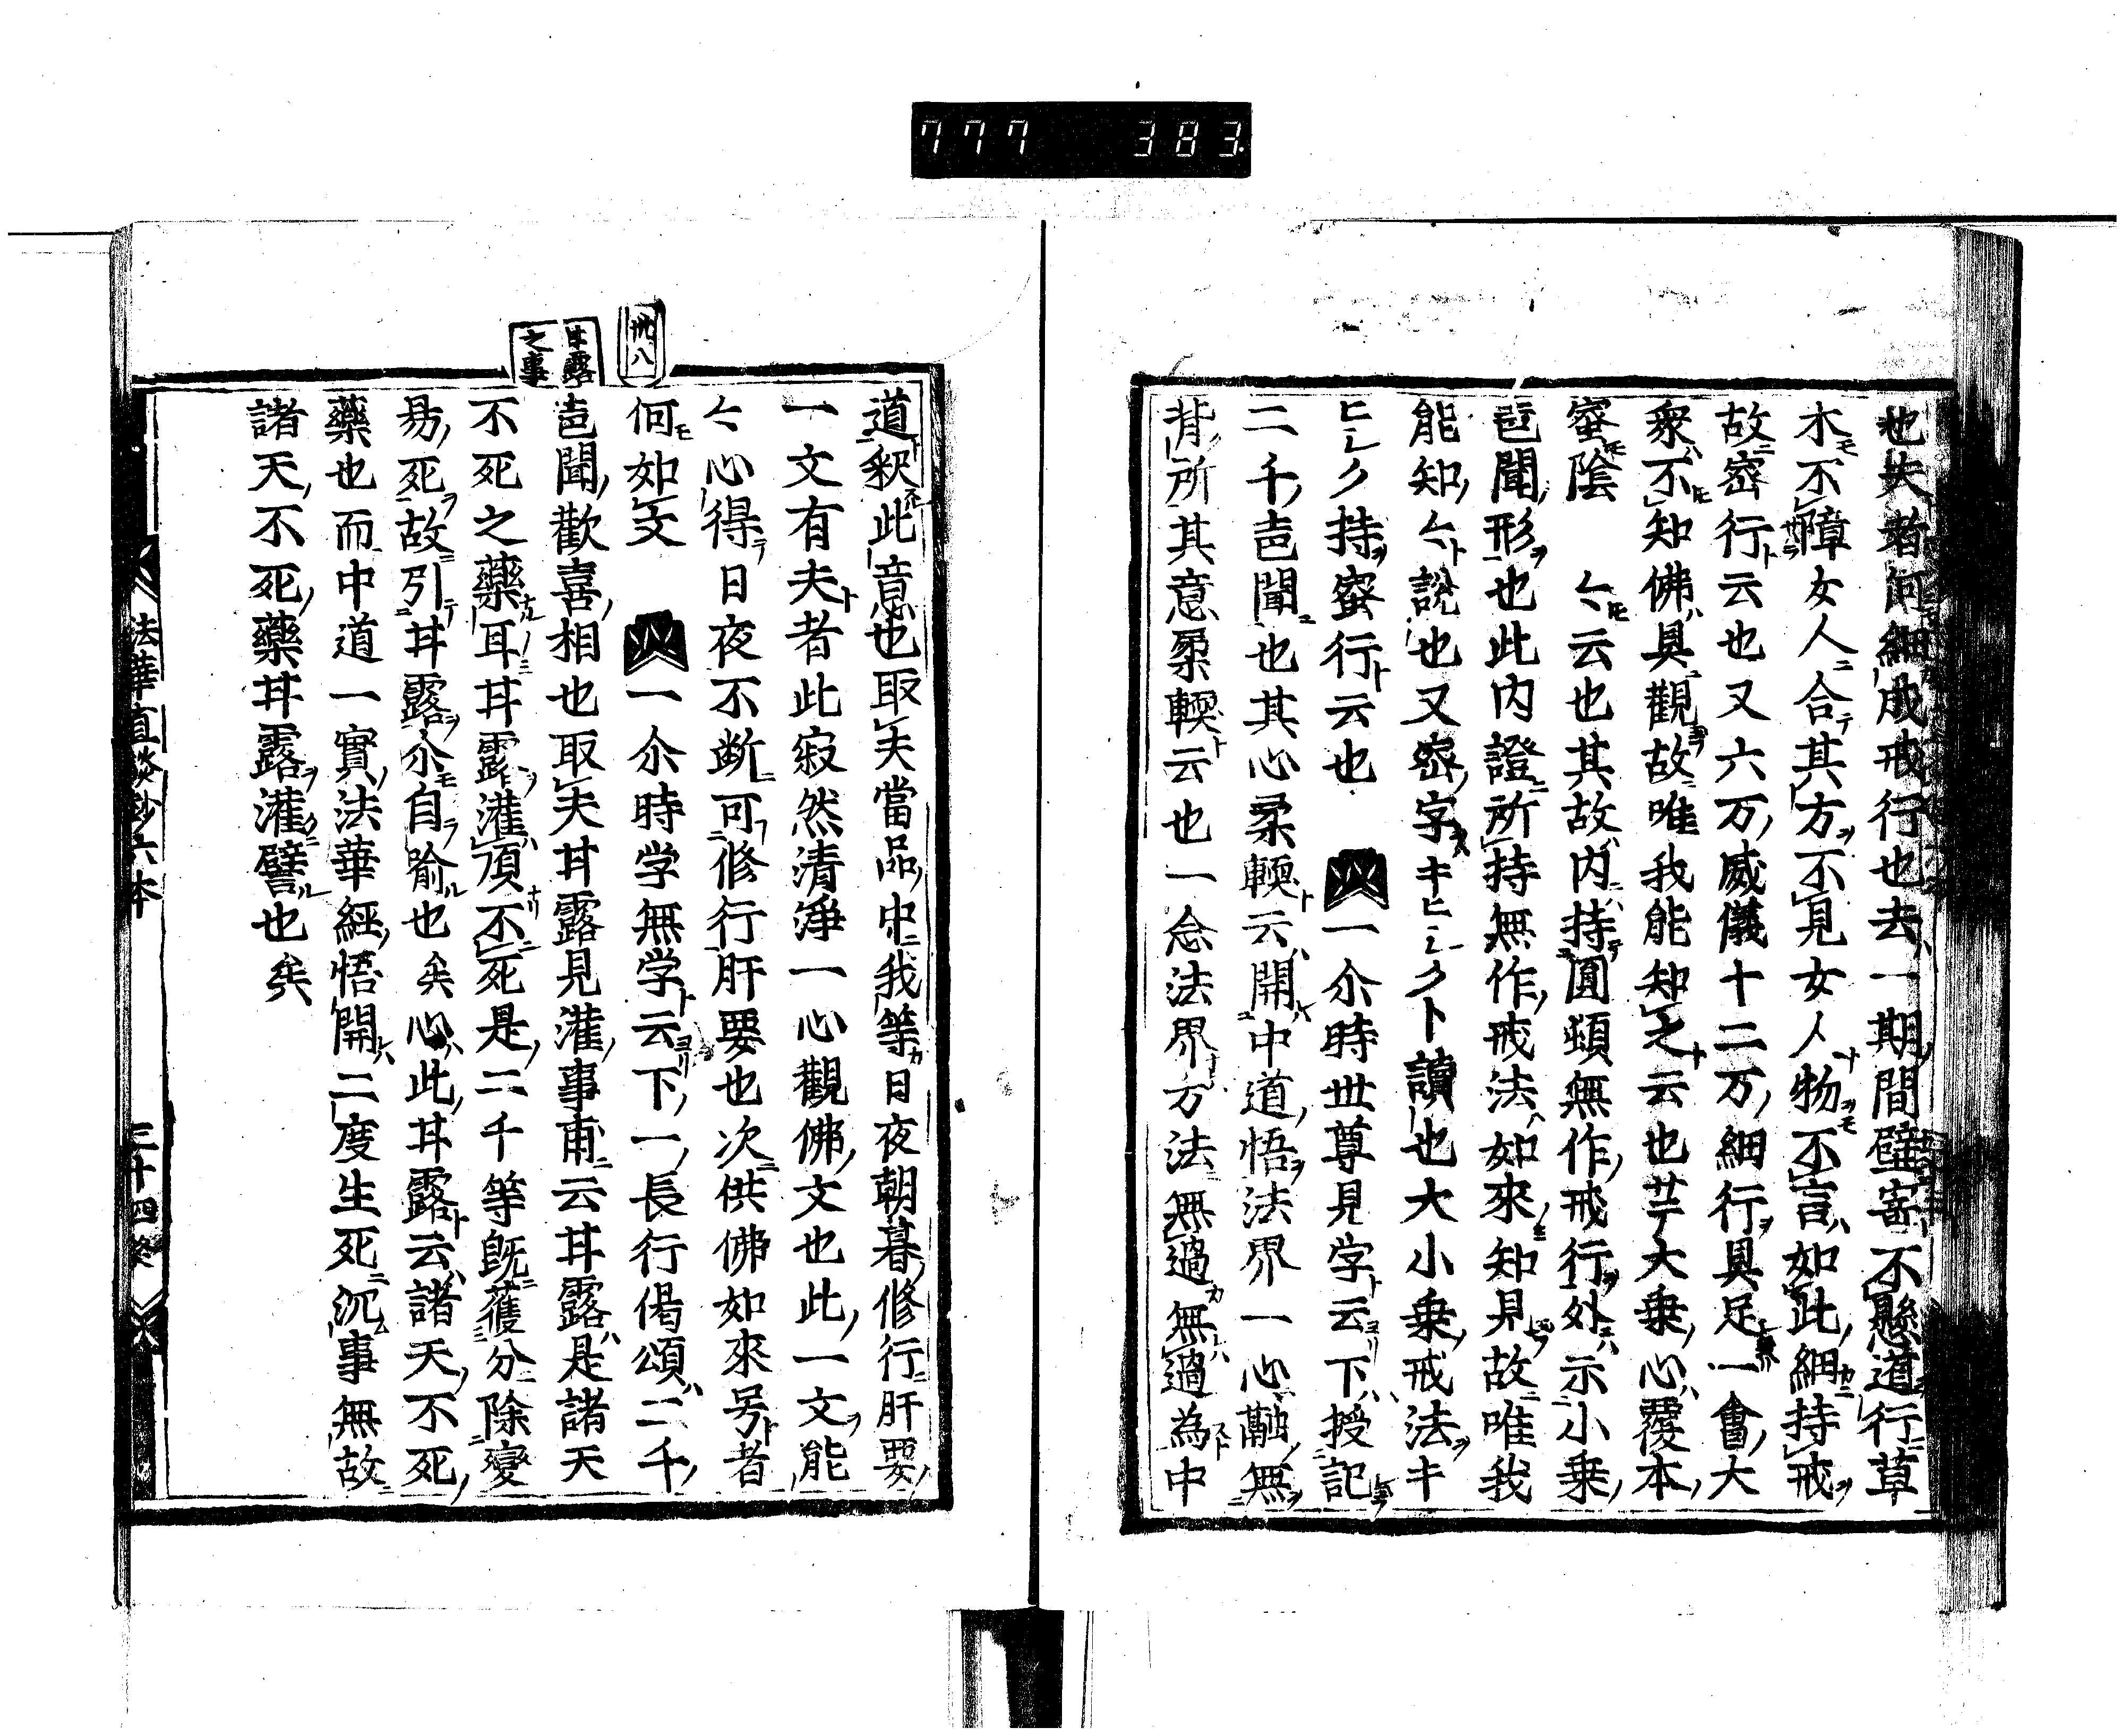 777 383
也失者何細成戒行也去一期間壁寄不懸道行草
木不障女人合其方不見女人物不言如此細持戒
故密行云也又六万威儀十二万細行具足一會大
衆不知佛具觀故唯我能知之云也大乗心覆本
蜜陰 云也其故内持圓頓無作戒行外示小乗
聞形也此内證所持無作戒法如來知見故唯我
能知説也又密字キヒシクト讀也大小乗戒法キ
ヒシク持蜜行云也 一尒時世尊見学云下授記
二千聞也其心柔輭云開中道悟法界一心融無
背所其意柔輭云也一念法界方法無過無過為中
道釈此意也取夫當品中我等日夜朝暮修行肝要
一文有夫者此寂然清淨一心觀佛文也此一文能
心得日夜不断可修行肝要也次供佛如來号者
何如文 一尒時学無学云下一長行偈頌二千
卅八
甘露之事
聞歡喜相也取夫甘露見灌事甫云甘露是諸天
不死之藥耳甘露灌頂不死是二千等既獲分除變
易死故引甘露尒自喩也矣心此甘露云諸天不死
藥也而中道一實法華經悟開二度生死沉事無故
諸天不死藥甘露灌譬也矣
法華直談鈔六本 三十四終